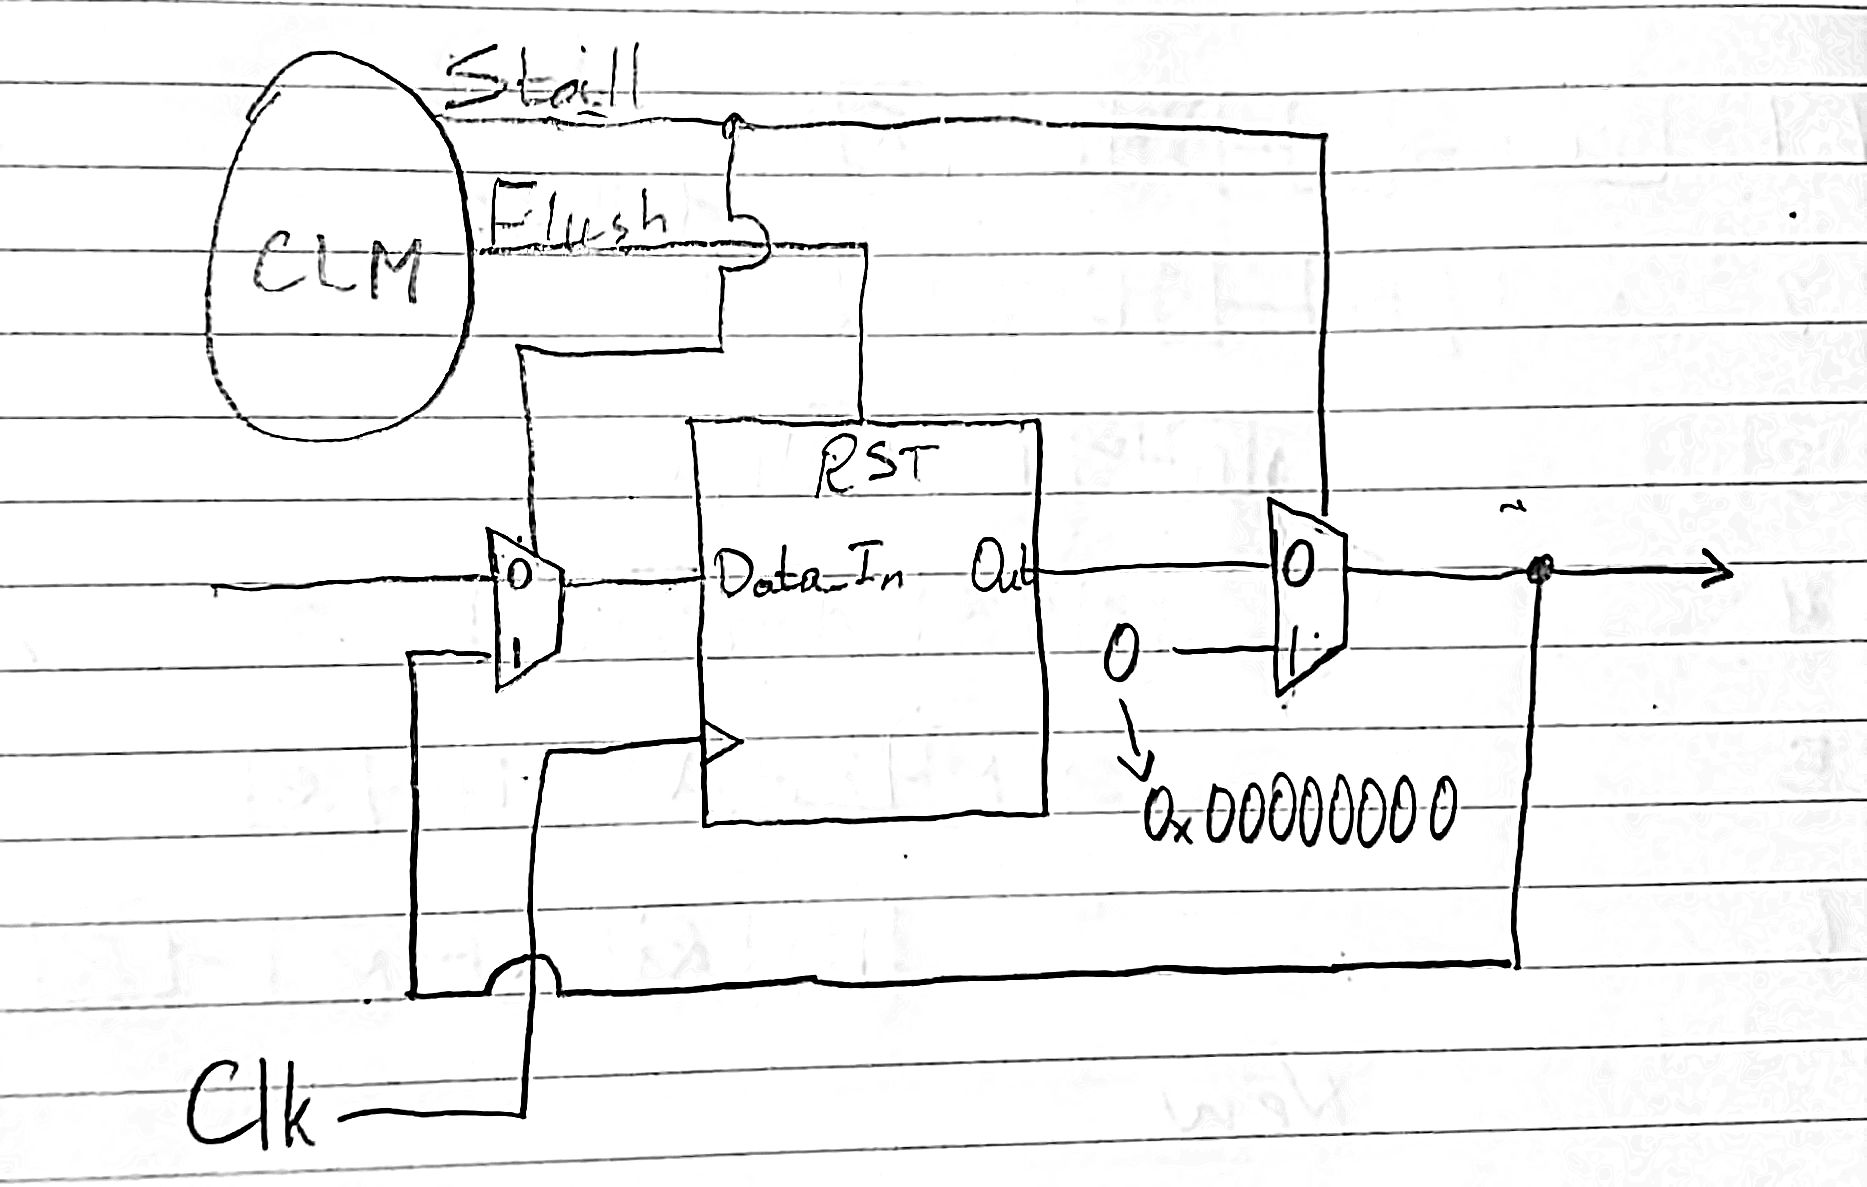 Stall
Flush
CLM
RST
0 Data_In Out 0
1 0 1
0x00000000
Clk